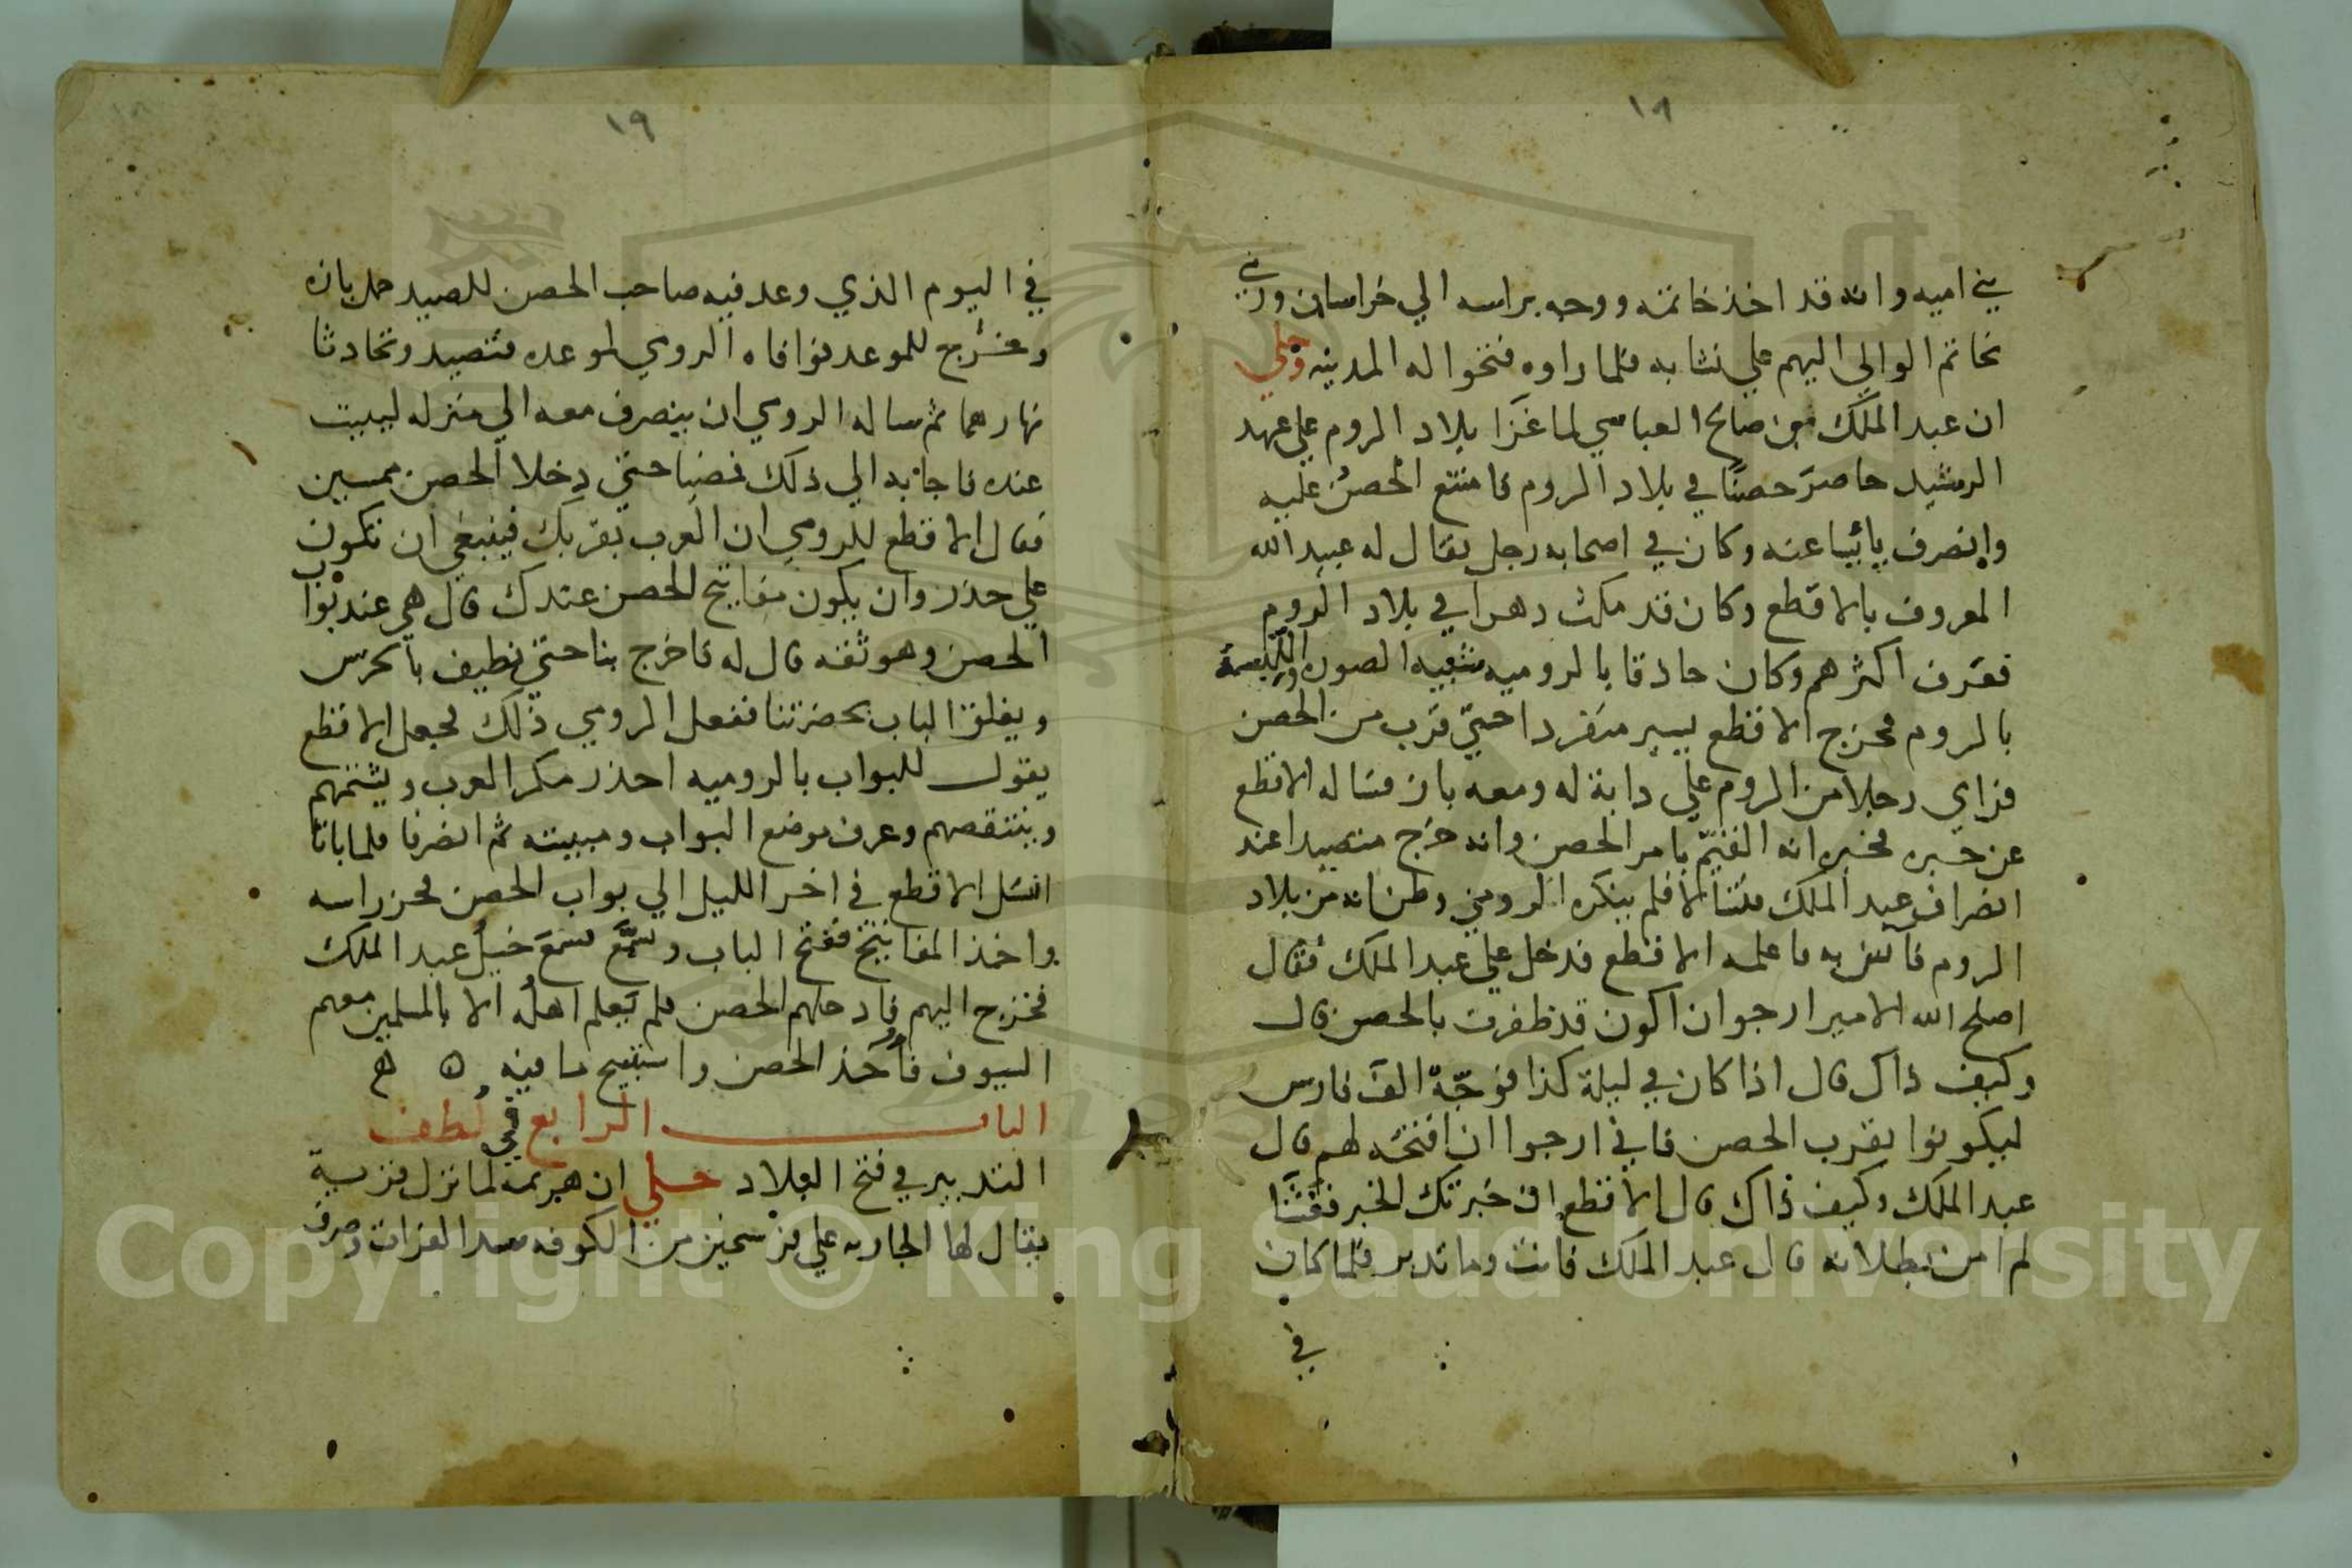 ١٨
بني اميه وانه قد اخذ خاتمه ووجه براسه الي خراسان ورمي
بخاتم الوالي اليهم علي نشابه فلما راوه فتحوا له المدينه وحكي
ان عبد الملك بن صالح العباسي لما غزا بلاد الروم علي عهد
الرشيد حاصَرَ حصنًا في بلاد الروم فامتنع الحصنُ عليه
وانصرف يائيسا عنه وكان في اصحابه رجل يقال له عبيد الله
المعروف بالاقطع وكان قد مكث دهرا في بلاد الروم
فعرف اكثرهم وكان حاذقا بالروميه شبيه الصوره واللبسة
بالروم فخرج الاقطع يسير منفردا حتي قرب من الحصن
فراي رجلا من الروم علي دابة له ومعه باز فساله الاقطع
عن خبره فخبره انه القيّم بامر الحصن وانه خرج متصيدا عند
انصراف عبد الملك فتسالا فلم ينكره الرومي وظن انه من بلاد
الروم فآنس به فاعلمه الاقطع فدخل علي عبد الملك فقال
اصلح الله الامير ارجوا ان اكون قد ظفرت بالحصن قال
وكيف ذاك قال اذا كان في ليلة كذا فوجّه الف فارس
ليكونوا بقرب الحصن فاني ارجوا ان افتحه لهم قال
عبد الملك وكيف ذاك قال الاقطع ان خبرتك الخبر
لم امن بطلانه قال عبد الملك فانت وما تدبر فلما كان
في
١٩
في اليوم الذي وعد فيه صاحب الحصن للصيد حمل بازه
وخرج للموعد فوافاه الرومي لموعده فتصيد وتحادثا
نهارهما ثم ساله الرومي ان ينصرف معه الي منزله ليبيت
عنده فاجابه الي ذلك فمضيا حتي دخلا الحصن ممسين
فقال الاقطع للرومي ان العرب بقربك فينبغي ان تكون
علي حذر وان يكون مفاتيح الحصن عندك قال هي عند بواب
الحصن وهو ثقه قال له فاخرج بنا حتي نطيف بالحرس
ويغلق الباب بحضرتنا ففعل الرومي ذلك فجعل الاقطع
يقول للبواب بالروميه احذر مكر العرب ويشتمهم
وينتقصهم وعرف موضع البواب ومبيته ثم انصرفا فلما باتا
انسل الاقطع في اخر الليل الي بواب الحصن فحز راسه
واخذ المفاتيح ففتح الباب خيل عبد الملك
فخرج اليهم فادخلهم الحصن فلم يَعلم اهلُه الا بالمسلمين معهم
السيوف فأُخذ الحصن واستبيح ما فيه ه ه
الباب الرابع في لطف
التدبير في فتح البلاد حكي ان هرثمة لما نزل قرية
يقال لها الجاريه علي فرسخين من الكوفه الفرات وصرف